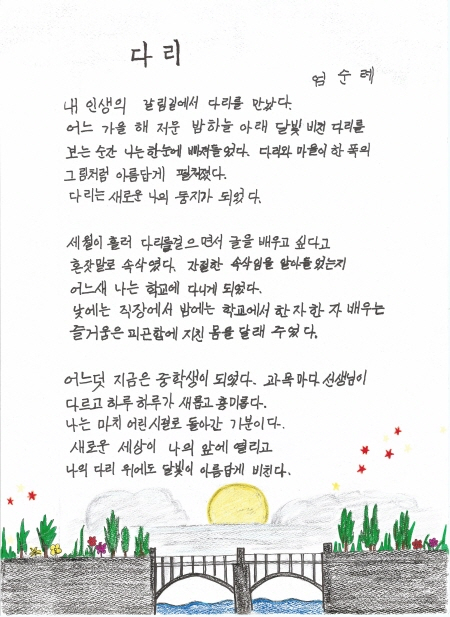 다리
엄순례
내 인생의 갈림길에서 다리를 만났다.
어느 가을 해 저문 밤하늘 아래 달빛 비친 다리를
보는 순간 나는 한눈에 빠져들었다. 다리와 마을이 한 폭의
그림처럼 아름답게 펼쳐졌다.
다리는 새로운 나의 둥지가 되었다.
세월이 흘러 다리를 걸으면서 글을 배우고 싶다고
혼잣말로 속삭였다. 간절한 속삭임을 알아들었는지
어느새 나는 학교에 다니게 되었다.
낮에는 직장에서 밤에는 학교에서 한 자 한 자 배우는
즐거움은 피곤함에 지친 몸을 달래 주었다.
어느덧 지금은 중학생이 되었다. 과목마다 선생님이
다르고 하루 하루가 새롭고 흥미롭다.
나는 마치 어린 시절로 돌아간 기분이다.
새로운 세상이 나의 앞에 열리고
나의 다리 위에도 달빛이 아름답게 비친다.